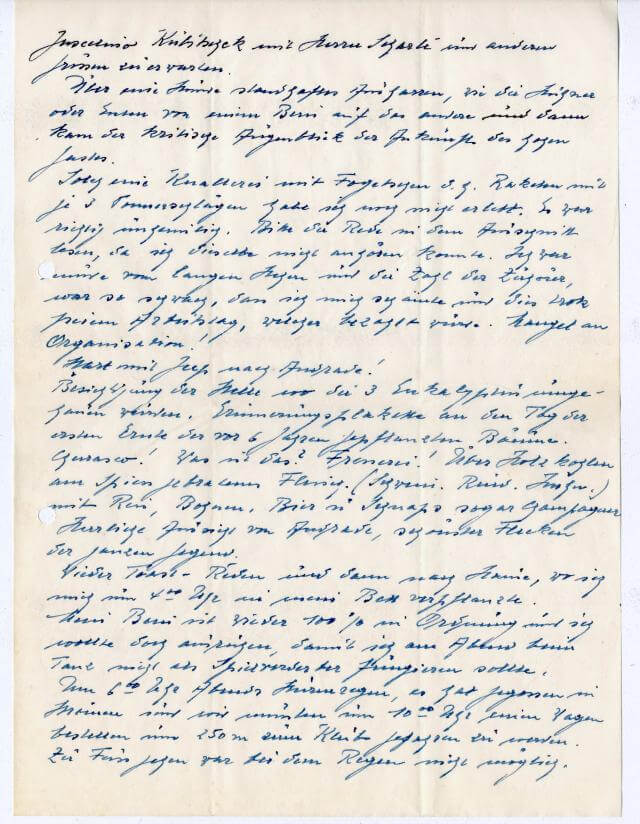 Juscelino Kubitscek mit Herrn Scharlé und anderen
grössen zu erwarten.
Über eine Stunde standhaftes Ausharren, wie die Hühner
oder Enten von einem Bein auf das andere und dann
kam der kritische Augenblick der Ankunft des hohen
Gastes.
Solch eine Knallerei mit Fogetschen d.h. Raketen mit
je 3 Donnerschlägen habe ich noch nicht erlebt. Es war
richtig ungemütlich. Bitte die Rede in dem Ausschnitt
lesen, da ich dieselbe nicht anhören konnte. Ich war
müde vom langen Stehen und die Zahl der Zuhörer,
war so schwach, dass ich mich schämte und dies trotz
freiem Arbeitstag, welcher bezahlt wurde. Mangel an
Organisation!
Start mit Jeep nach Andrade!
Besichtigung der Stelle wo die 3 Eukalyptus umge-
hauen wurden. Erinnerungsplakette an den Tag der
ersten Ernte der vor 6 Jahren gepflanzten Bäume.
Churasco! Was ist das? Fresserei! Über Holzkohlen
am Spiess gebratenes Fleisch (Schwein. Rind. Huhn.)
mit Reis, Bohnen, Bier u Schnaps sogar Champagner
Herrliche Aussicht von Andrade, schönster Flecken
der ganzen Gegend.
Wieder Toast-Reden und dann nach Hause, wo ich
mich um 4⁰⁰ Uhr in mein Bett verpflanzte.
Mein Bein ist wieder 100% in Ordnung und ich
wollte doch ausruhen, damit ich am Abend beim
Tanz nicht als Spielverderber fungieren sollte.
Um 6⁰⁰ Uhr Abends Sturmregen, es hat gegossen in
Strömen und wir mussten um 10⁰⁰ Uhr einen Wagen
bestellen um 250 m zum Klub gefahren zu werden.
Zu Fuss gehen war bei dem Regen nicht möglich.